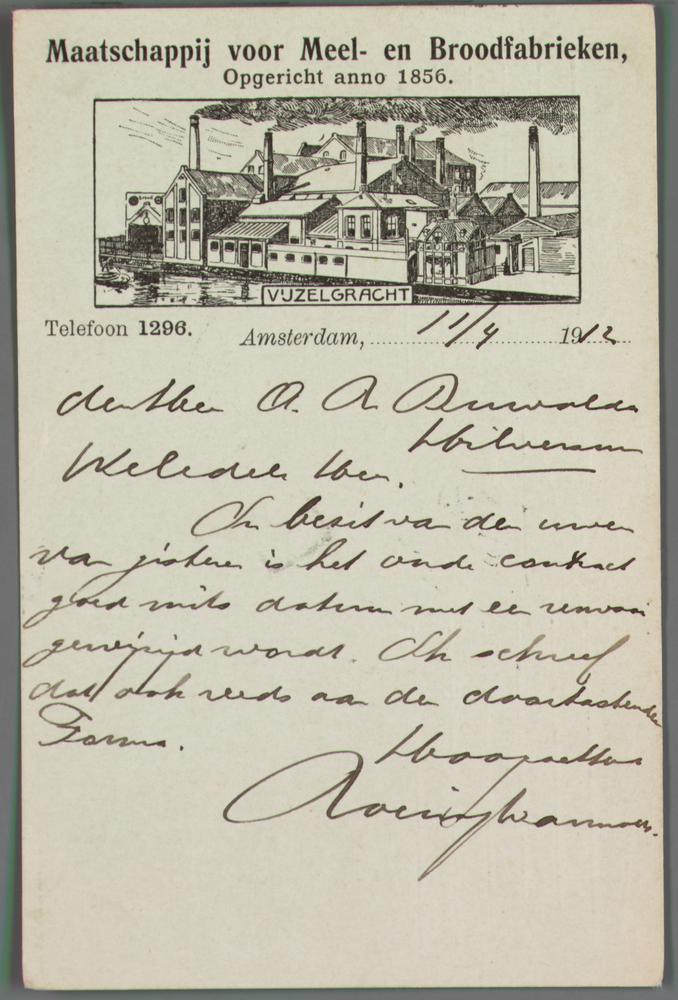 Maatschappij voor Meel- en Broodfabrieken,
Opgericht anno 1856.
VIJZELGRACHT
Telefoon 1296.
Amsterdam, 11/4 1912
den Heer
Hilversum
WelEdele Heer.
In bezit van den uwen
van gisteren is het oude contract
goed mits datum met een renvooi
gewijzigd wordt. Ik schreef
dat ook reeds aan den doortastenden
Forma.
Hoogachtend